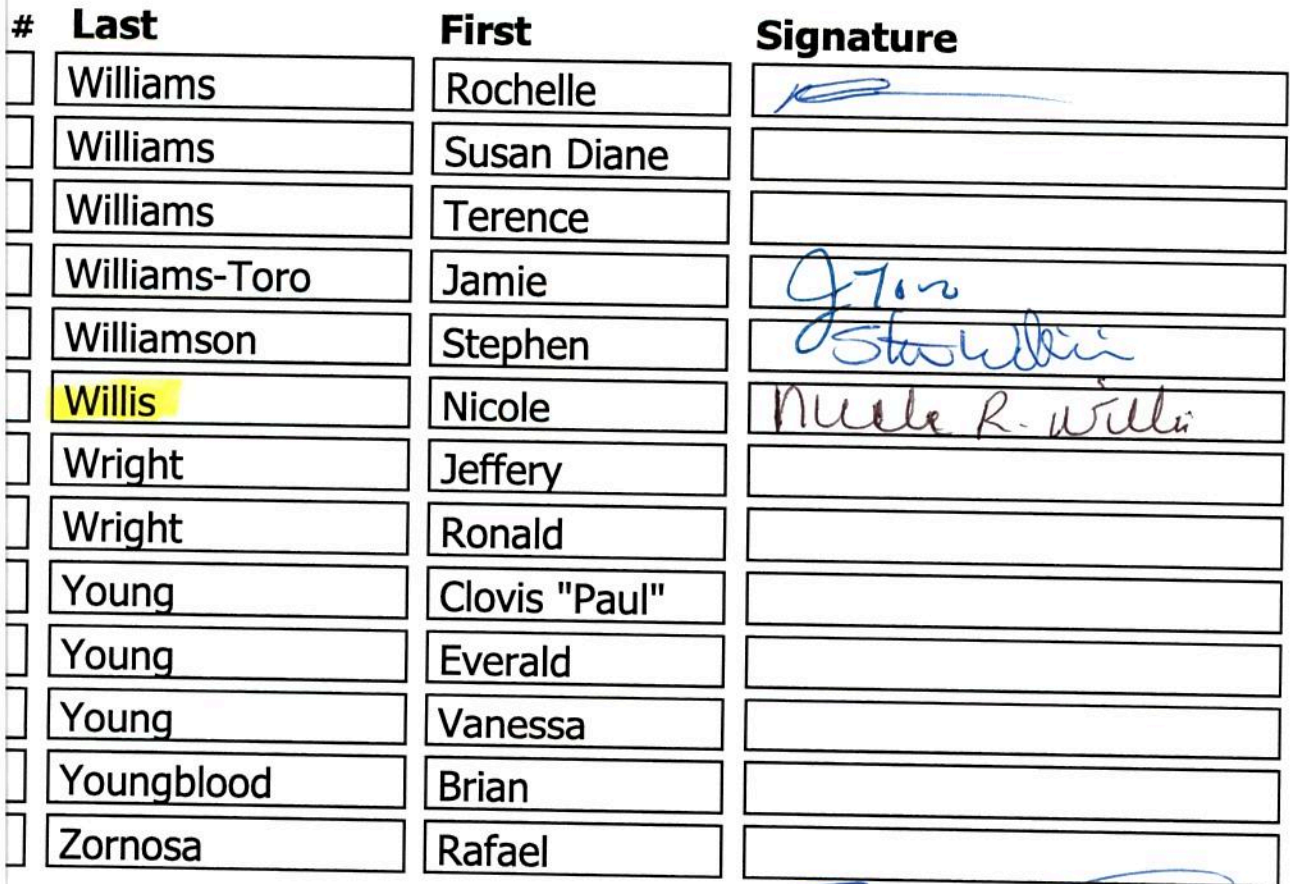 # Last First Signature
Williams Rochelle
Williams Susan Diane
Williams Terence
Williams-Toro Jamie J Toro
Williamson Stephen
Willis Nicole Nicole R. Willis
Wright Jeffery
Wright Ronald
Young Clovis "Paul"
Young Everald
Young Vanessa
Youngblood Brian
Zornosa Rafael